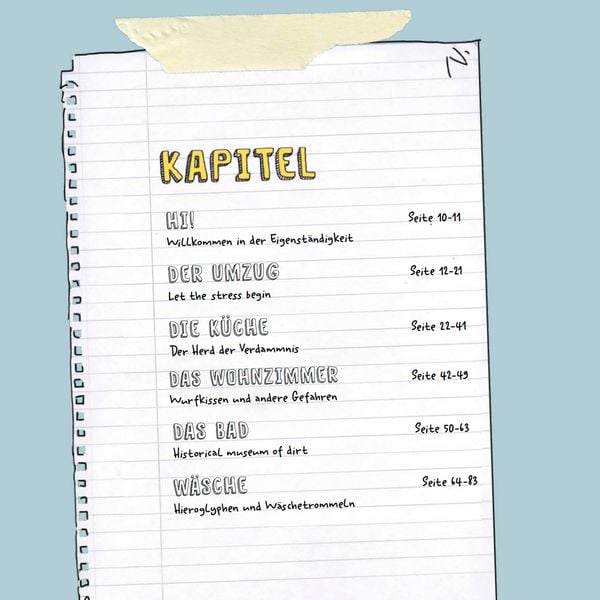 KAPITEL
HI! Seite 10-11
Willkommen in der Eigenständigkeit
DER UMZUG Seite 12-21
Let the stress begin
DIE KÜCHE Seite 22-41
Der Herd der Verdammnis
DAS WOHNZIMMER Seite 42-49
Wurfkissen und andere Gefahren
DAS BAD Seite 50-63
Historical museum of dirt
WÄSCHE Seite 64-83
Hieroglyphen und Wäschetrommeln